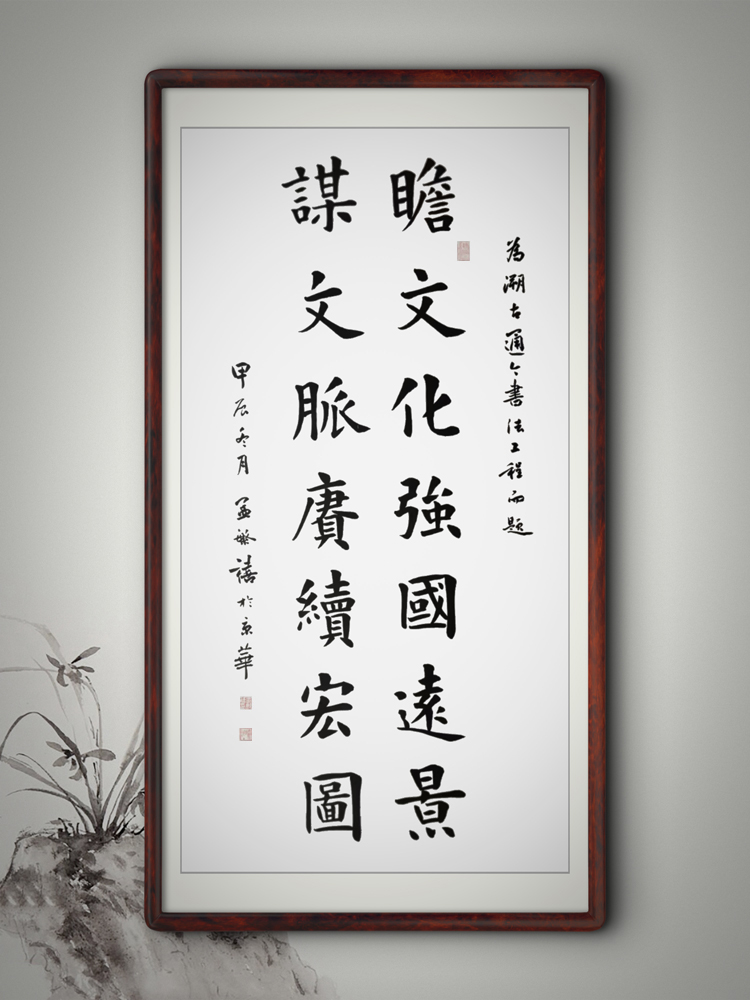 為溯古通今書法工程而題
瞻文化強國遠景
謀文脈賡續宏圖
甲辰冬月孟繁禧於京華